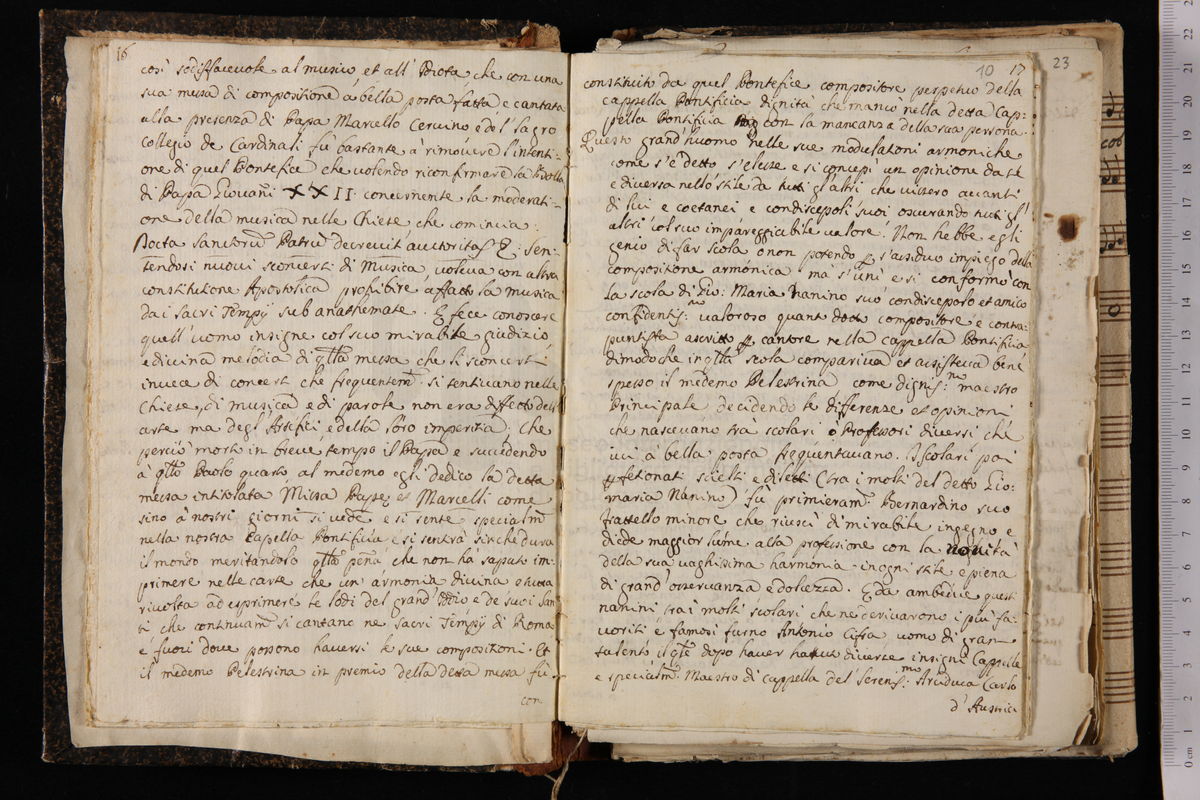 16
così sodisfacevole al musico, et all' Idiota che con una
sua messa di compositione à bella posta fatta e cantata
alla presenza di Papa Marcello Cervino e del sagro
Collegio de Cardinali fù bastante à rimovere l'intenti-
one di quel Pontefice che volendo riconfirmare la Bolla
di Papa Giovani XXII: concernente la moderati-
one della musica nelle Chiese che comincia:
Docta Sanctorũ Patrũ decrevit auctoritas &: Sen-
tendosi nuovi sconcerti di Musica, voleva con altra
constitutione Apostolica prohibire affatto la musica
dai sacri Tempij sub anathemate. E fece conoscere
quell' uomo insigne col suo mirabile giudizio
e divina melodia di qlla messa che li sconcerti
invece di concerti che frequentem. si sentivano nelle
Chiese, di musica e di parole non era diffetto dell'
arte ma degl' Artefici e della loro imperitia. Che
perciò morto in breve tempo il Papa e succedendo
à qllo Paolo quarto al medemo egli dedicò la detta
messa intitolata Missa Papae Marcelli come
sino à nostri giorni si vede e si sente specialm.
nella nostra Cappella Pontificia e si sentirà sinche dura
il mondo meritandolo qlla pena che non ha saputo im-
primere nelle carte che un' armonia divina e tutta
rivolta ad esprimere le lodi del grand' Iddio e de suoi San-
ti che continuam. si cantano ne sacri Tempij di Roma
e fuori dove possono haversi le sue compositioni. Et
il medemo Pelestrina in premio della detta messa fù
con
10 17
23
constituito da quel Pontefice compositore perpetuo della
cappella Pontificia dignità che mancò nella detta Cap-
pella Pontificia con la mancanza della sua persona.
Questo grand' huomo nelle sue modulationi armoniche
come s'è detto s'elesse e si concepì un opinione da sé
e diversa nello stile da tutti gl'altri che vissero avanti
di lui e coetanei e condiscepoli suoi oscurando tutti gl'
altri col suo impareggiabile valore. Non hebbe egli
genio di far scola o non potendo p l'assiduo impiego della
compositione armonica ma s'unì e si conformò con
la scola di Gio: Maria Nanino suo condiscepolo et amico
confidentis:mo valoroso quant dotto compositore e contra-
puntista ascritto p cantore nella cappella Pontificia
dimodoche in qlla scola compariva et assisteva bene
spesso il medemo Pelestrina come dignis:mo maestro
Principale decidendo le differenze et opinioni
che nascevano tra scolari ò Professori diversi che
ivi à bella posta frequentavano. I scolari poi
pfetionati scielti e diletti (tra i molti del detto Gio-
maria Nanino) fù primieram. Bernardino suo
frattello minore che riuscì di mirabile ingegno e
diede maggior lume alla professione con la novità
della sua vaghissima harmonia in ogni stile e piena
di grand' osservanza e dolcezza. E da ambedue questi
nanini tra i molti scolari che ne derivarono i più fa-
voriti e famosi furno Antonio Cifra uomo di gran
talento il qle dopo haver hauute diverse insigni Cappelle
e specialm. Maestro di cappella del Sereniss:mo Arciduca Carlo
d'Austria